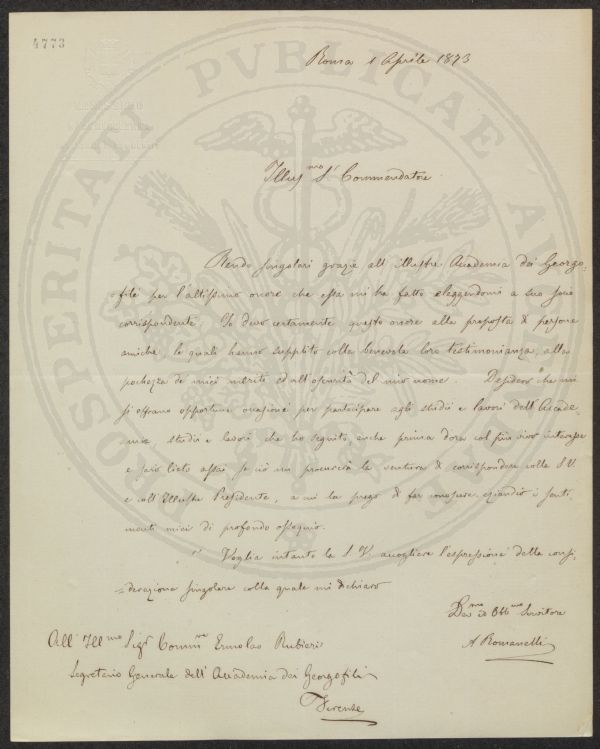 4773
Roma 1 Aprile 1873
PROSPERITATI PUBLICAE AU
Illus.mo S.r Commendatore
Rendo singolari grazie all'illustre Accademia dei Georgo-
fili per l'altissimo onore che essa mi ha fatto eleggendomi a suo socio
corrispondente. Io devo certamente questo onore alla proposta di persone
amiche le quali hanno supplito colla benevola loro testimonianza, alla
pochezza de' miei meriti ed all'oscurità del mio nome. Desidero che mi
si offrano opportune occasioni per partecipare agli studi e lavori dell'Accade-
mia, studi e lavori che ho seguito anche prima d'ora col più vivo interesse
e sarò lieto assai se ciò mi procurerà la ventura di corrispondere colla S.V.
e coll'Illustre Presidente, a cui la prego di far conoscere eziandio i senti-
menti miei di profondo ossequio.
Voglia intanto la S.V. accogliere l'espressione della consi-
derazione singolare colla quale mi dichiaro
Dev.mo ed Obb.mo Servitore
A Romanelli
All' Ill.mo Sig.r Comm.re Ermolao Rubieri
Segretario Generale dell'Accademia dei Georgofili
Firenze